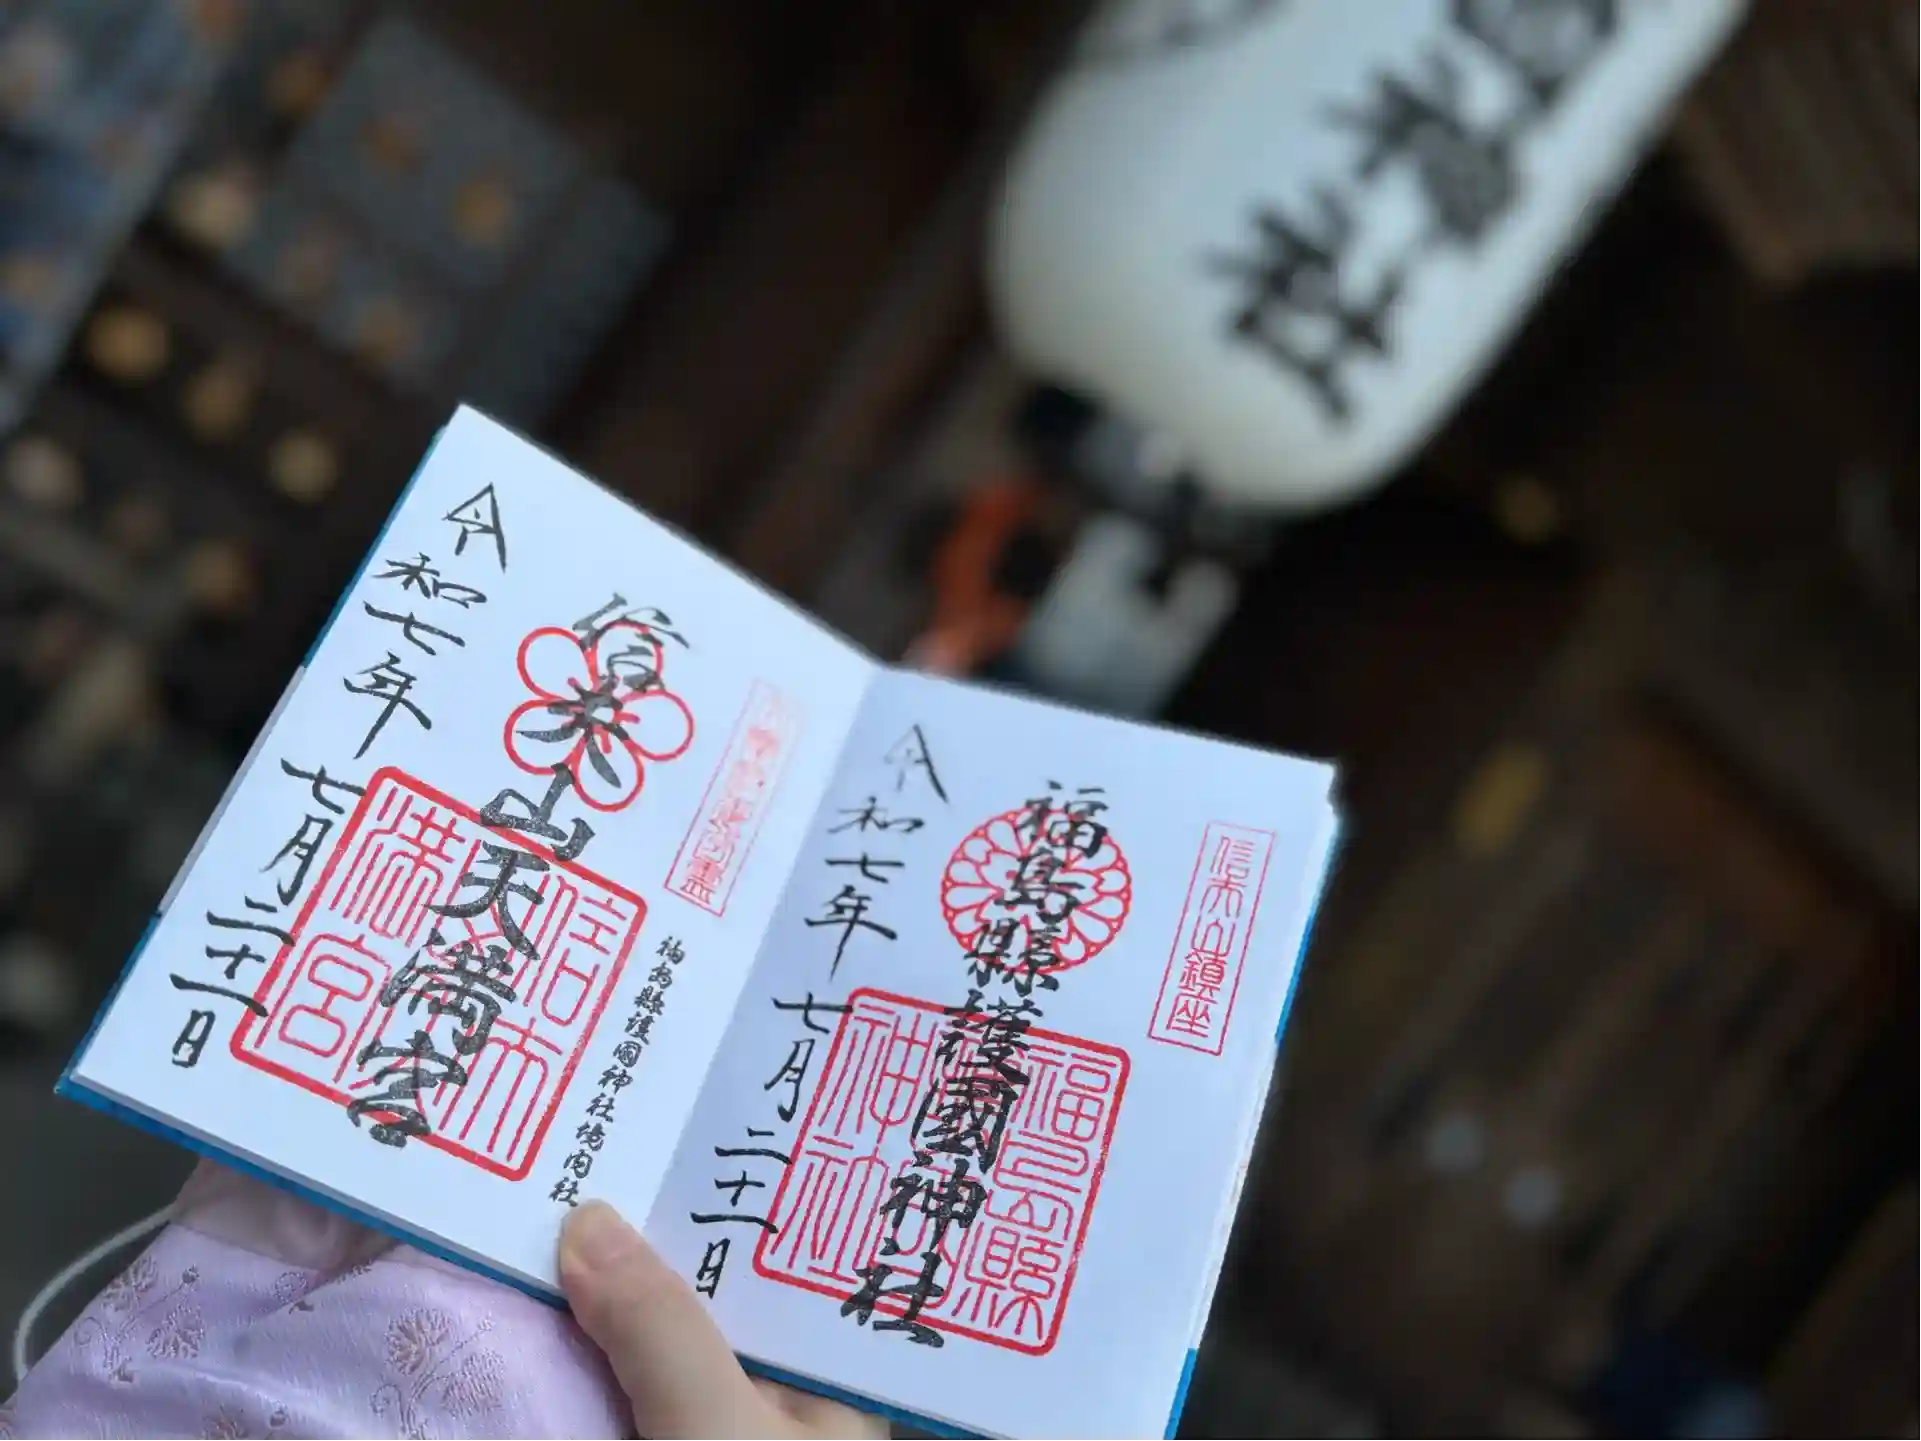 信夫山鎮座
福島縣護國神社
福島縣護國神社
令和七年七月二十一日
福島縣護國神社境内社
信夫山天満宮
信夫山天満宮
令和七年七月二十一日
神社